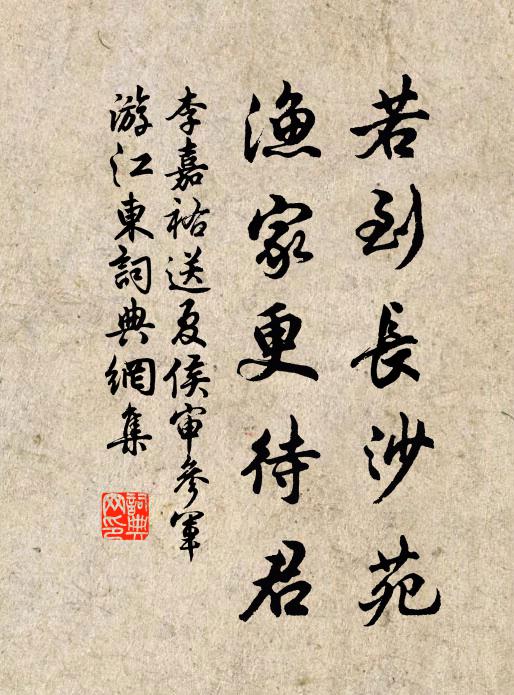 若到長沙苑
漁家更待君
李嘉祐送夏侯审參軍
游江東詞典網集
詞典
网印